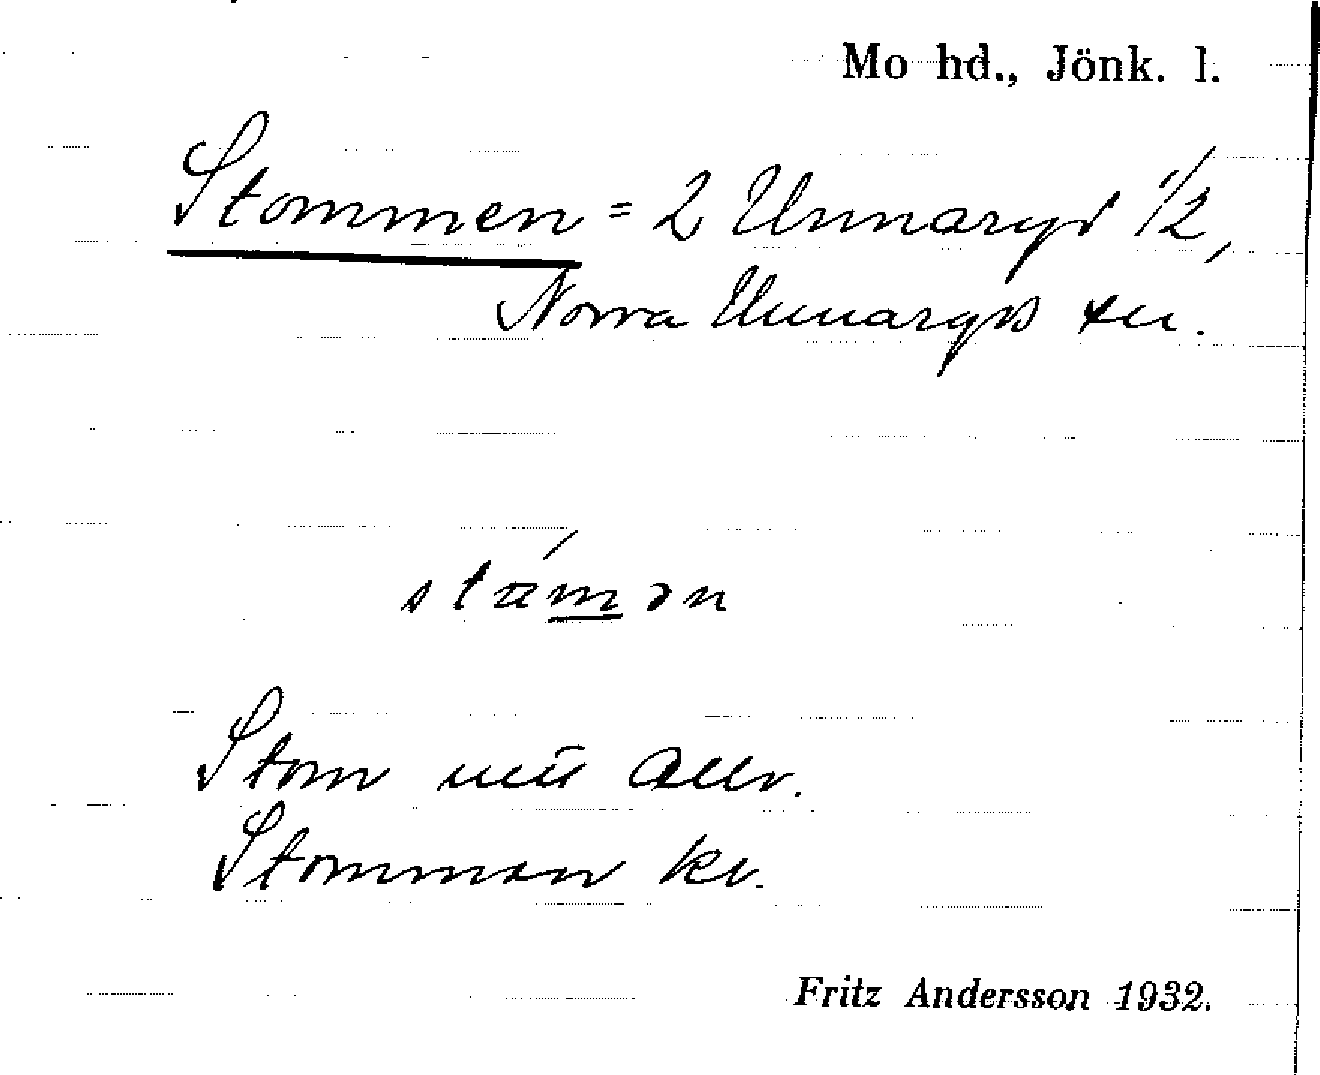 Mo hd., Jönk. l.
Stommen = 2 Unnaryd 1/2,
Norra Unnaryds sn.
Stom
Stomman kv.
Fritz Andersson 1932.